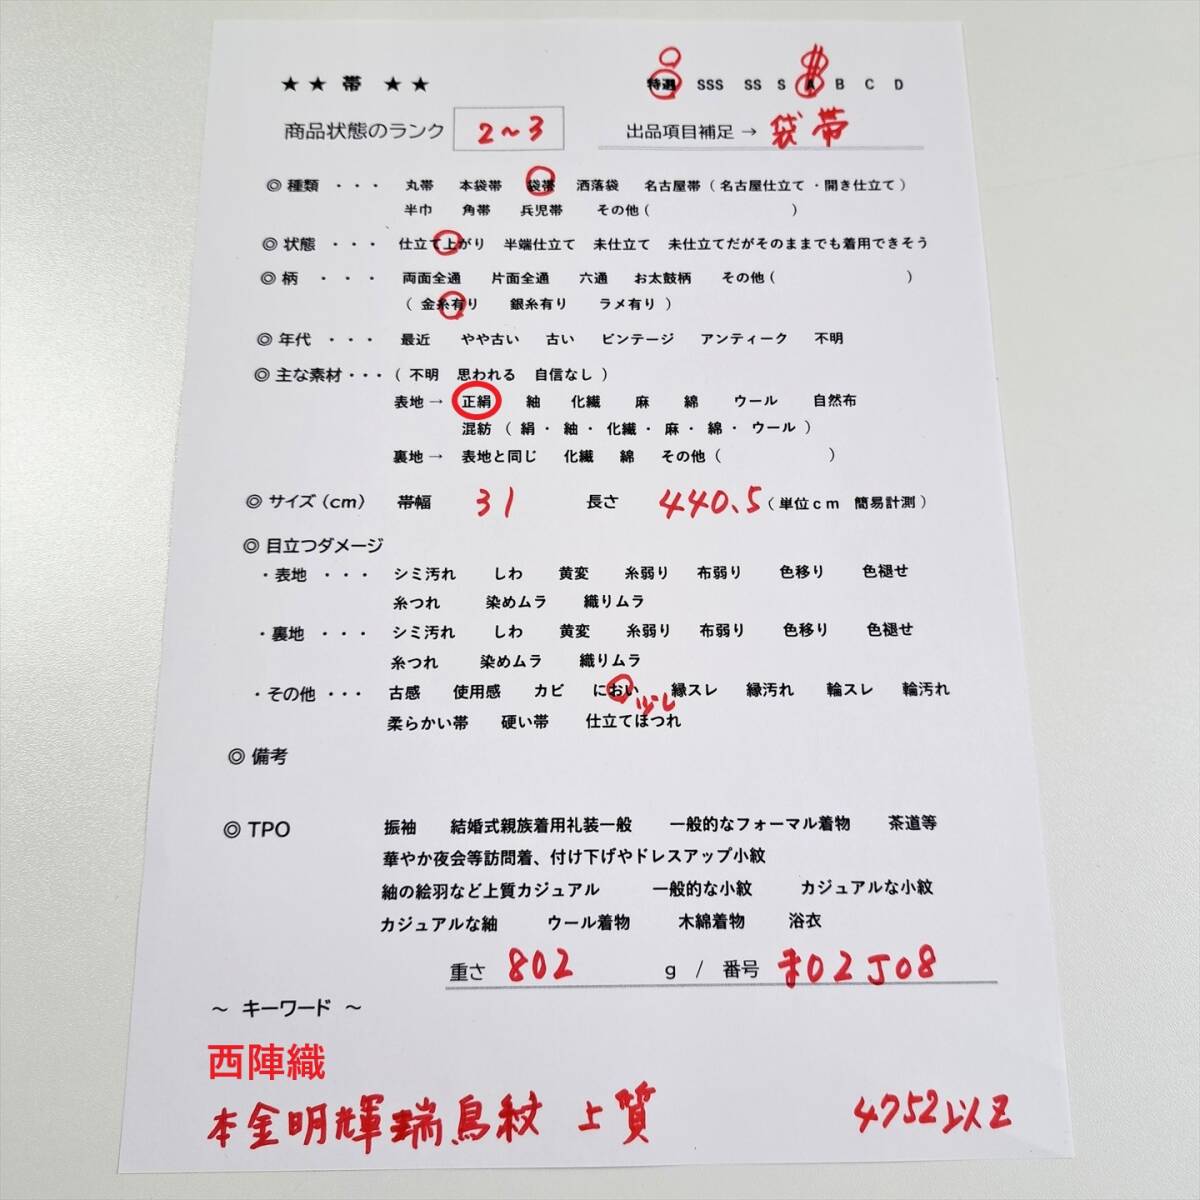 ★ ★ 帯 ★ ★ 特選 SSS SS S A B C D
商品状態のランク 2～3 出品項目補足→ 袋帯
◎ 種類 ・・・ 丸帯 本袋帯 袋帯 洒落袋 名古屋帯（名古屋仕立て・開き仕立て）
半巾 角帯 兵児帯 その他（ ）
◎ 状態 ・・・ 仕立て上がり 半端仕立て 未仕立て 未仕立てだがそのままでも着用できそう
◎ 柄 ・・・ 両面全通 片面全通 六通 お太鼓柄 その他（ ）
（ 金糸有り 銀糸有り ラメ有り ）
◎ 年代 ・・・ 最近 やや古い 古い ビンテージ アンティーク 不明
◎ 主な素材・・・（ 不明 思われる 自信なし ）
表地→ 正絹 紬 化繊 麻 綿 ウール 自然布
混紡（ 絹・ 紬・ 化繊・ 麻・ 綿・ ウール ）
裏地→ 表地と同じ 化繊 綿 その他（ ）
◎ サイズ（cm） 帯幅 31 長さ 440.5（単位cm 簡易計測）
◎ 目立つダメージ
・表地 ・・・ シミ汚れ しわ 黄変 糸弱り 布弱り 色移り 色褪せ
糸つれ 染めムラ 織りムラ
・裏地 ・・・ シミ汚れ しわ 黄変 糸弱り 布弱り 色移り 色褪せ
糸つれ 染めムラ 織りムラ
・その他 ・・・ 古感 使用感 カビ におい 縁スレ 縁汚れ 輪スレ 輪汚れ
少し
柔らかい帯 硬い帯 仕立てほつれ
◎ 備考
◎ TPO 振袖 結婚式親族着用礼装一般 一般的なフォーマル着物 茶道等
華やか夜会等訪問着、付け下げやドレスアップ小紋
紬の絵羽など上質カジュアル 一般的な小紋 カジュアルな小紋
カジュアルな紬 ウール着物 木綿着物 浴衣
重さ 802 g / 番号 02J08
～ キーワード ～
西陣織
本金明輝瑞鳥紋 上質 4752